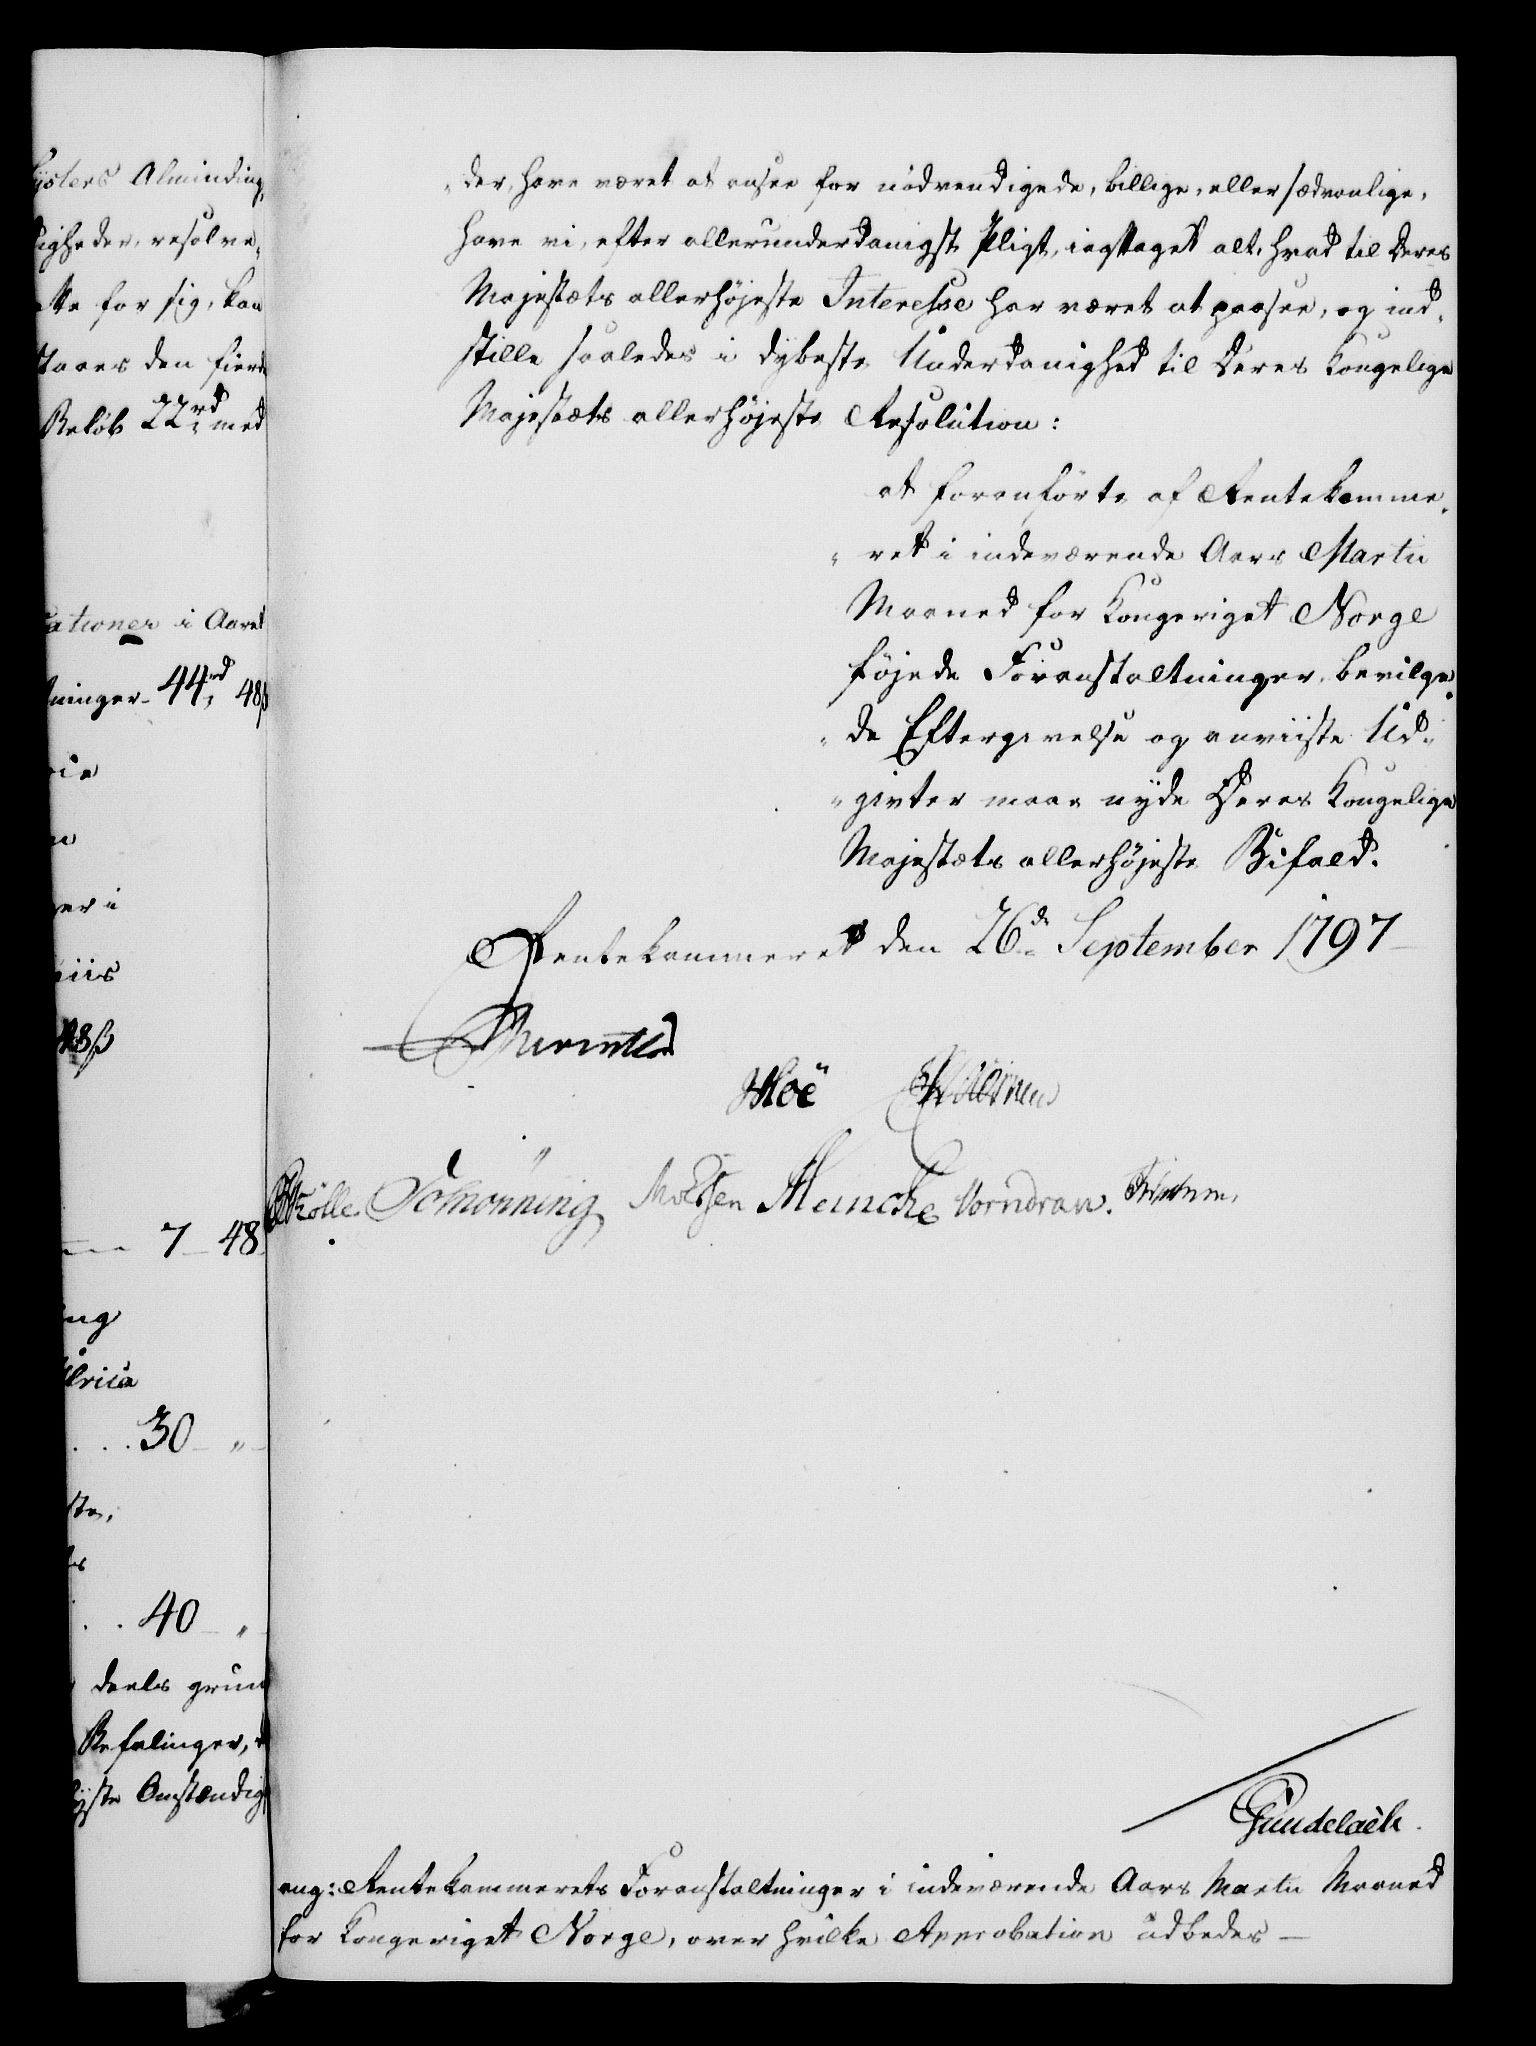 Lysters Alminding,
digheder, resolve„
atte for sig, kan
staaes den fierde
Beløb 22 rd med
cationer i Aaret
tninger 44 rd 48 ß
48 ß
7 48
Ulrica
30 „
40 „
deels grun
Befalinger,
Omstændig
„der, have været at ansee for nödvendigede, billige, eller sædvanlige,
have vi, efter allerunderdanigst Pligt, iagttaget alt, hvad til Deres
Majestæts allerhöjeste Interesse har været at paasee, og ind„
stille saaledes i dybeste Underdanighed til Deres Kongelige
Majestæts allerhöjeste Resolution:
at foranförte af Rentekamme„
„ret i indeværende Aars Martii
Maaned for Kongeriget Norge
föjede Foranstaltninger, bevilge„
„de Eftergivelse og anviiste Ud„
„givter maae nyde Deres Kongelige
Majestæts allerhöjeste Bifald.
Rentekammeret den 26de September 1797
Hoë
Schönning Meincke Vorndran.
Gundelach.
ang: Rentekammerets Foranstaltninger i indeværende Aars Martii Maaned
for Kongeriget Norge, over hvilke Approbation udbedes —